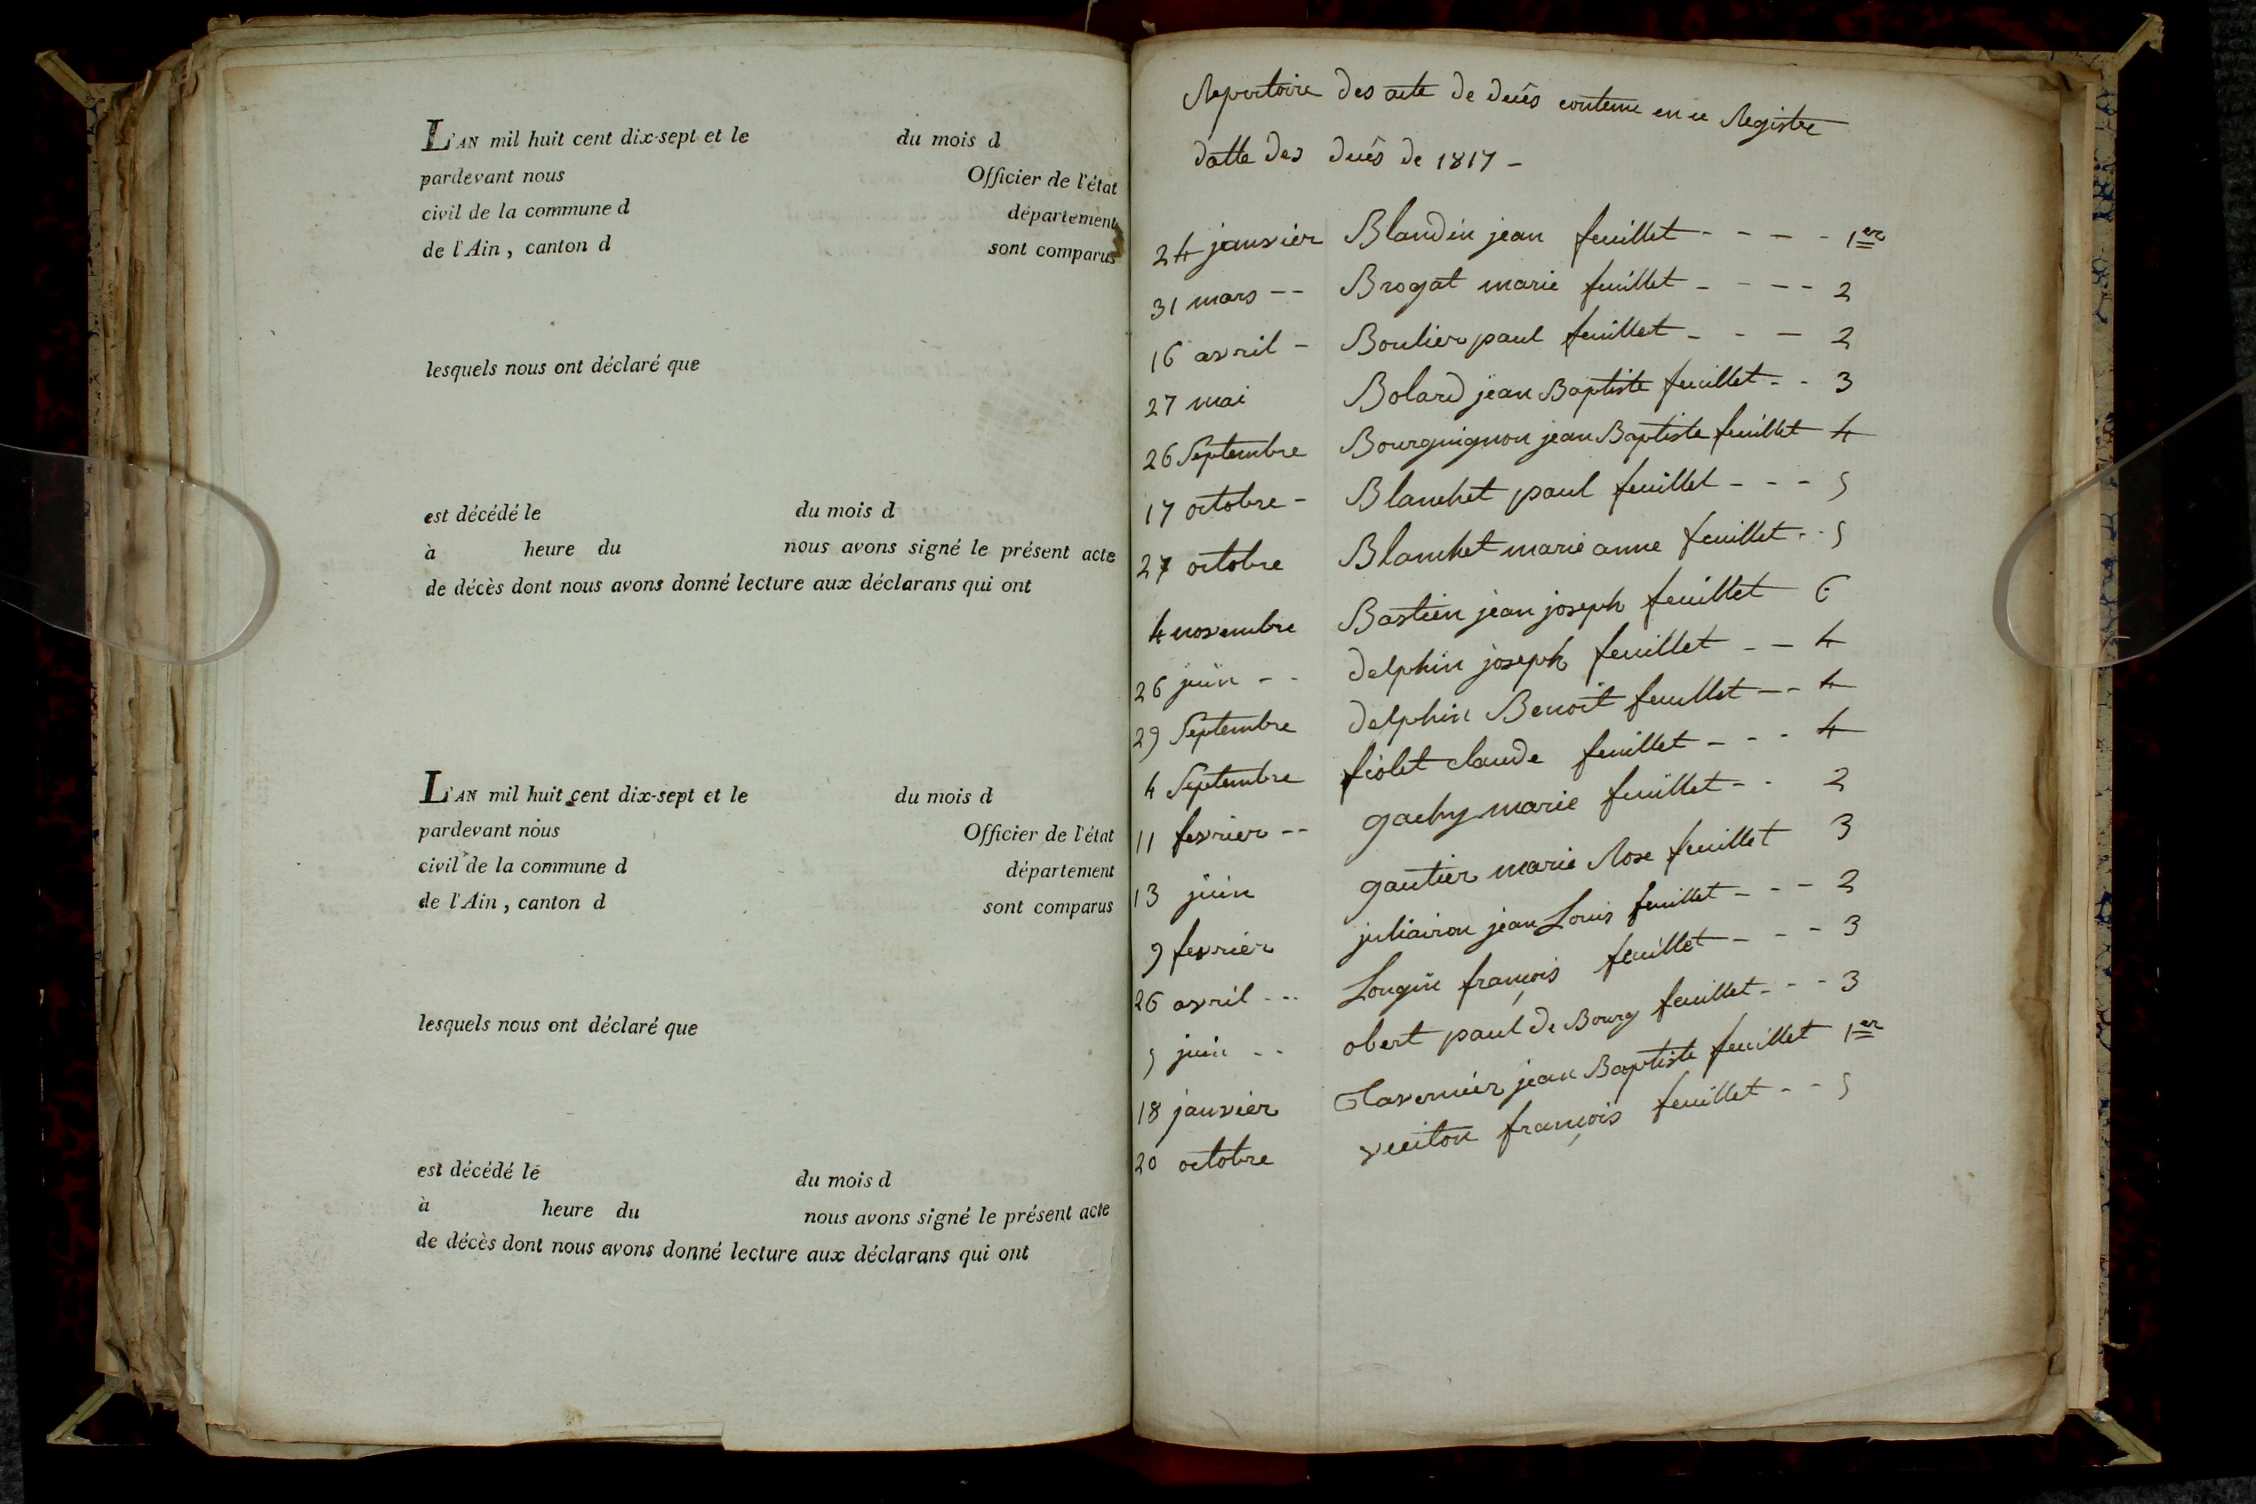 L'AN mil huit cent dix-sept et le du mois d
pardevant nous Officier de l'état
civil de la commune d département
de l'Ain, canton d sont comparus
lesquels nous ont déclaré que
est décédé le du mois d
à heure du nous avons signé le présent acte
de décès dont nous avons donné lecture aux déclarans qui ont
L'AN mil huit cent dix-sept et le du mois d
pardevant nous Officier de l'état
civil de la commune d département
de l'Ain, canton d sont comparus
lesquels nous ont déclaré que
est décédé le du mois d
à heure du nous avons signé le présent acte
de décès dont nous avons donné lecture aux déclarans qui ont
Repertoire des acte de decès contenu en ce Registre
datte des decès de 1817 -
24 janvier Blandin jean feuillet - - - - 1er
31 mars -- Brogat marie feuillet - - - - 2
16 avril - Boulier paul feuillet - - - 2
27 mai Bolard jean Baptiste feuillet - - 3
26 Septembre Bourguignon jean Baptiste feuillet 4
17 octobre - Blanchet paul feuillet - - - 5
27 octobre Blanchet marie anne feuillet - - 5
4 novembre Bastien jean joseph feuillet 6
26 juin - - delphin joseph feuillet - - 4
29 Septembre delphin Benoit feuillet - - 4
4 Septembre fiolet claude feuillet - - - 4
11 fevrier -- gachy marie feuillet - - 2
13 juin gautier marie Rose feuillet 3
9 fevrier juliairon jean Louis feuillet - - - 2
26 avril --- Longin françois feuillet - - - 3
5 juin - - obert paul de Bourg feuillet - - - 3
18 janvier Tavernier jean Baptiste feuillet 1er
20 octobre françois feuillet - - 5